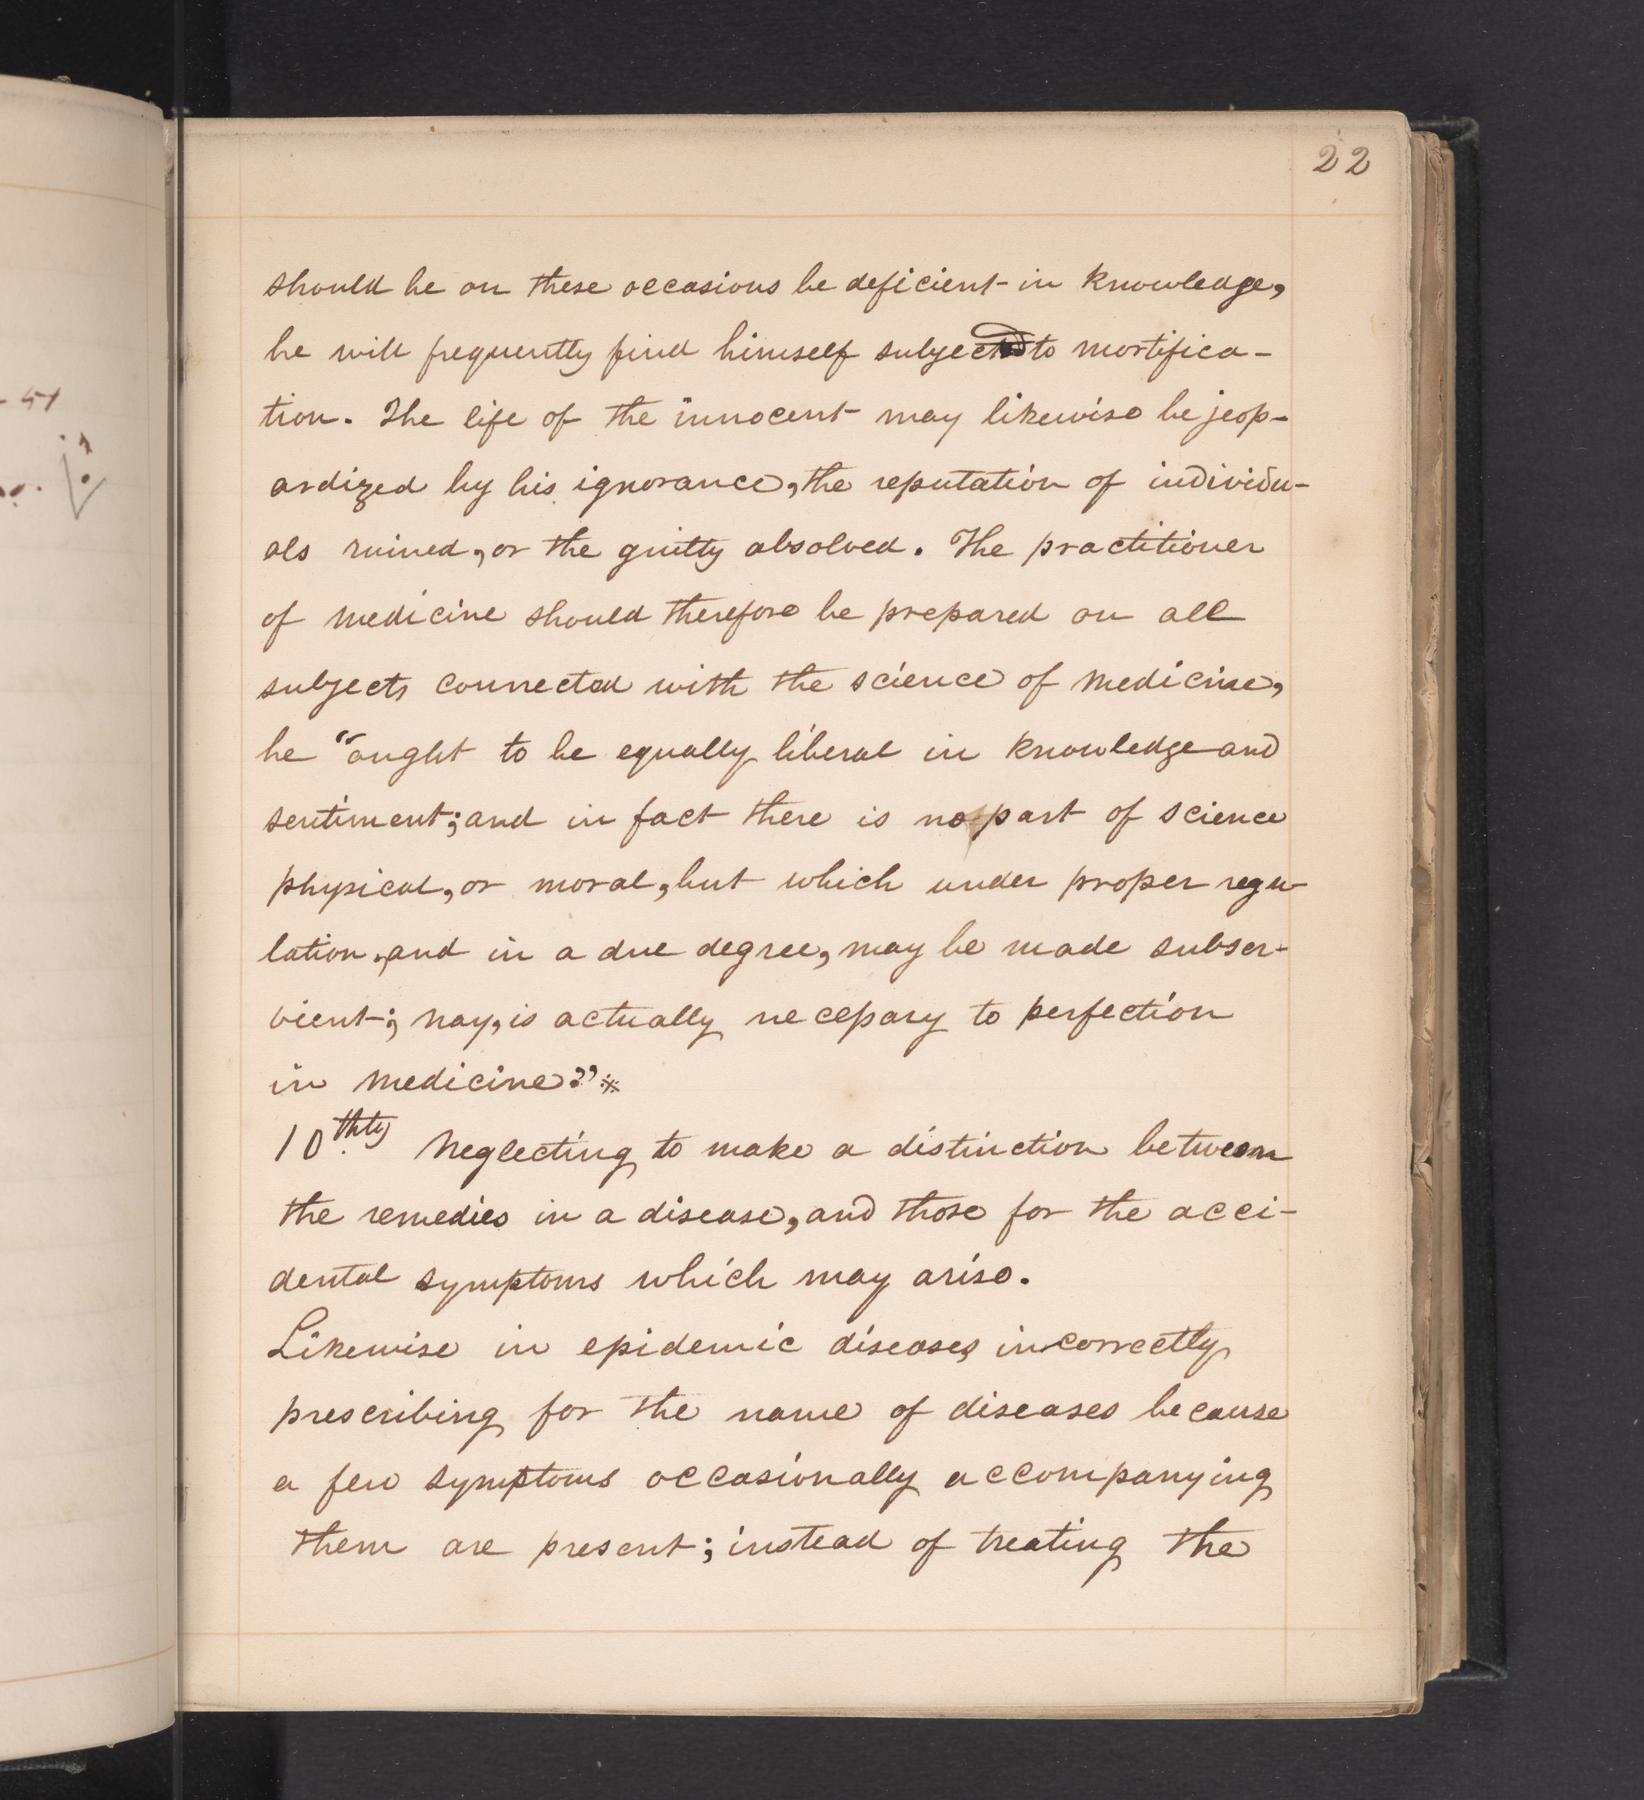 22
should he on these occasions be deficient in knowledge,
he will frequently find himself subjected to mortifica-
tion. The life of the innocent may likewise be jeop-
ardized by his ignorance, the reputation of individu-
als ruined, or the guilty absolved. The practitioner
of medicine should therefore be prepared on all
subjects connected with the science of medicine,
he "ought to be equally liberal in knowledge and
sentiment; and in fact there is no part of science
physical, or moral, but which under proper regu-
lation, and in a due degree, may be made subser-
vient; nay, is actually necessary to perfection
in medicine?" ※
10.thly Neglecting to make a distinction between
the remedies in a disease, and those for the acci-
dental symptoms which may arise.
Likewise in epidemic diseases incorrectly
prescribing for the name of diseases because
a few symptoms occasionally accompanying
them are present; instead of treating the
- 51